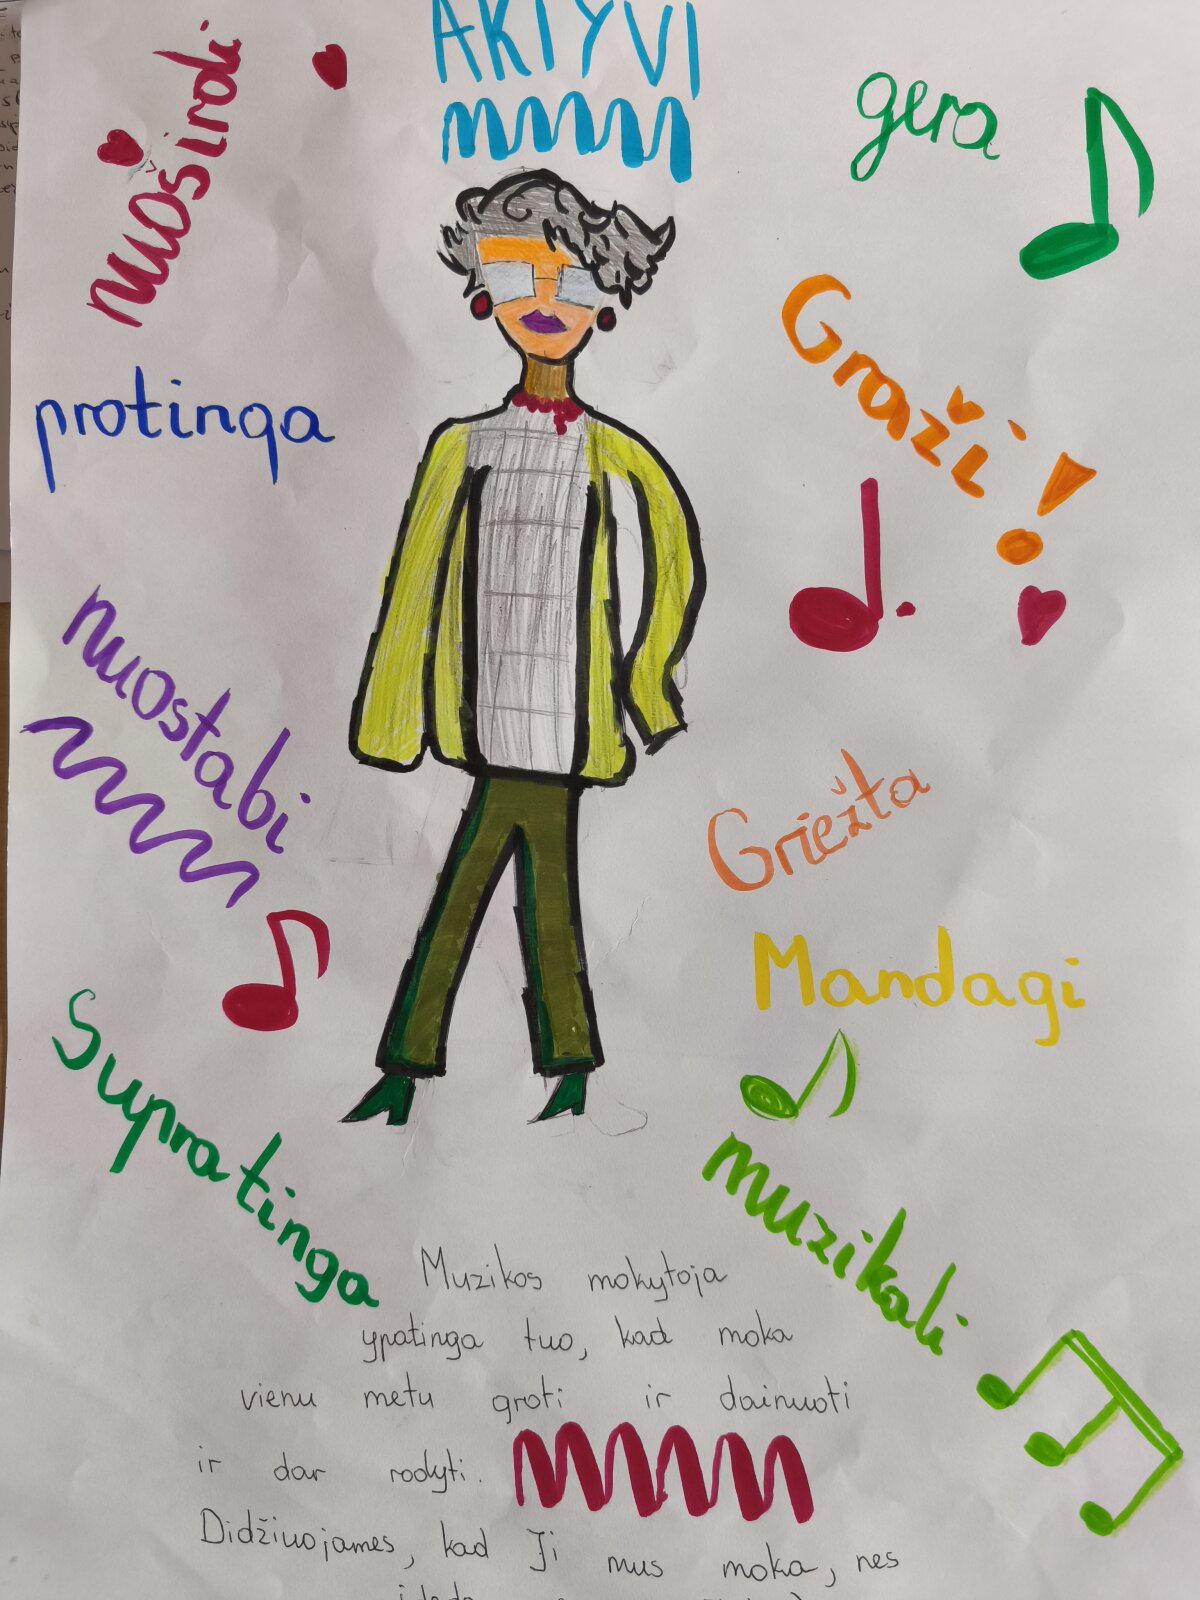 AKTYVI
nuoširdi
gera
protinga
Graži!
nuostabi
Griežta
Mandagi
Supratinga
muzikali
Muzikos mokytoja
ypatinga tuo, kad moka
vienu metu groti ir dainuoti
ir dar rodyti.
Didžiuojamės, kad Ji mus moka, nes